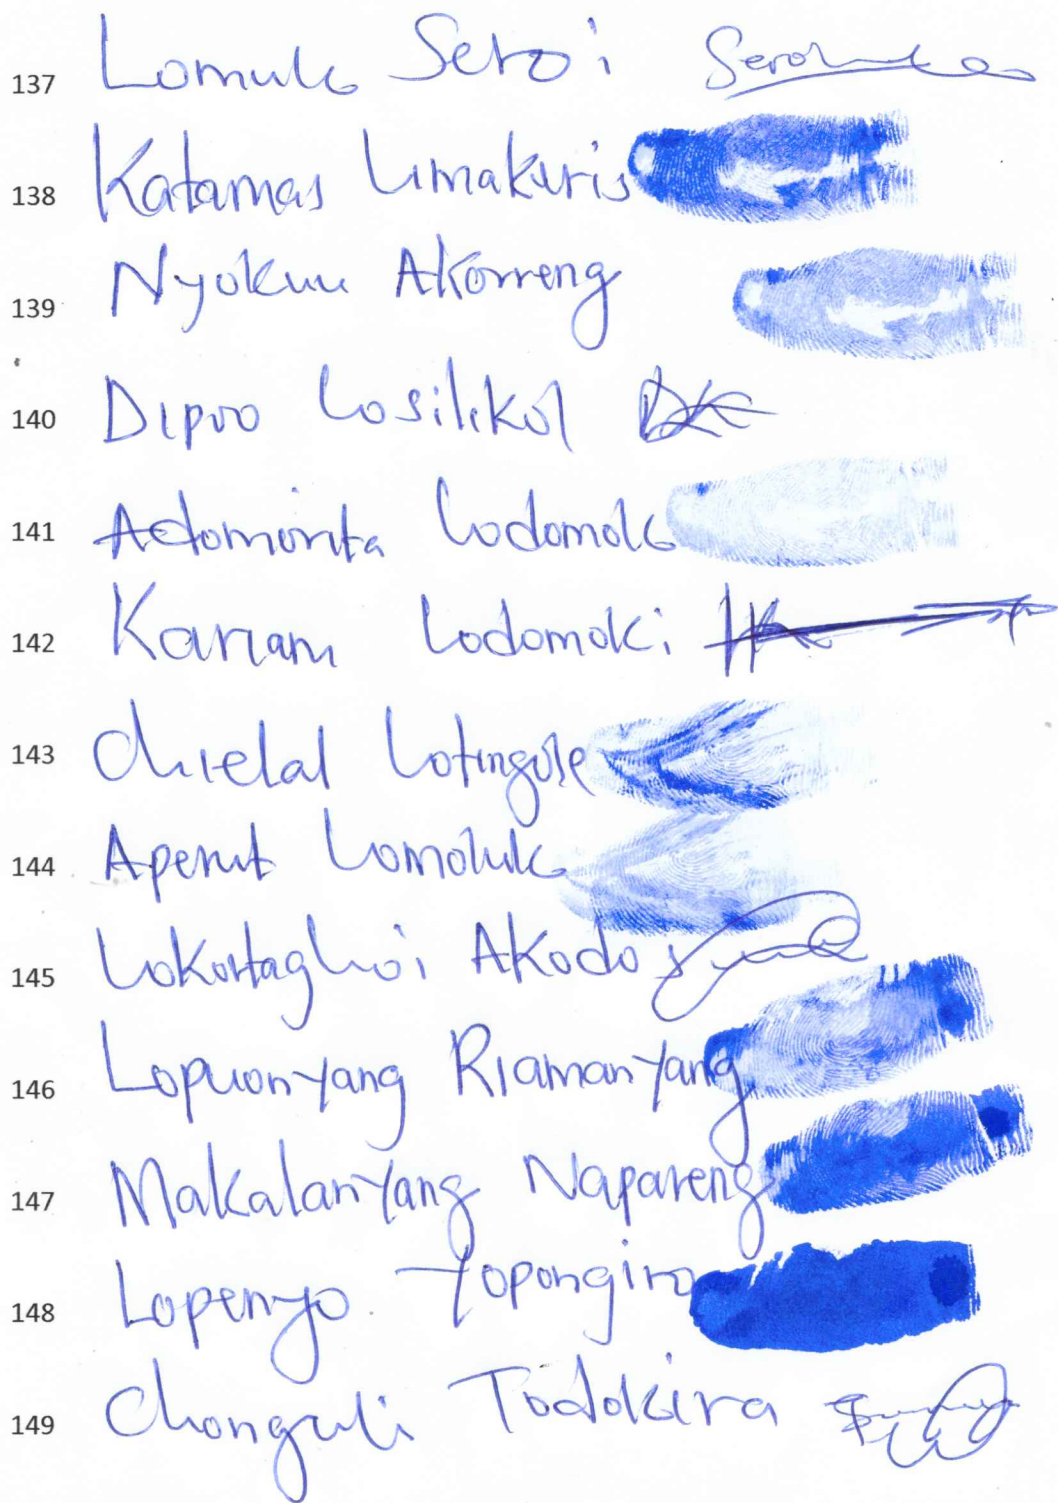 137 Lomuk Seroi
138 Katamas Limakuris
139 Nyokuu Akorreng
140 Dipoo Losilikol
141 Adomorita Lodomok
142 Kariam Lodomoki
143 Chirelal Lotingole
144 Aperit Lomoluk
145 Akodo
146 Lopuonyang Riamanyang
147 Makalanyang Napareng
148 Lopenyo Yopongiro
149 Chonguli Todokira